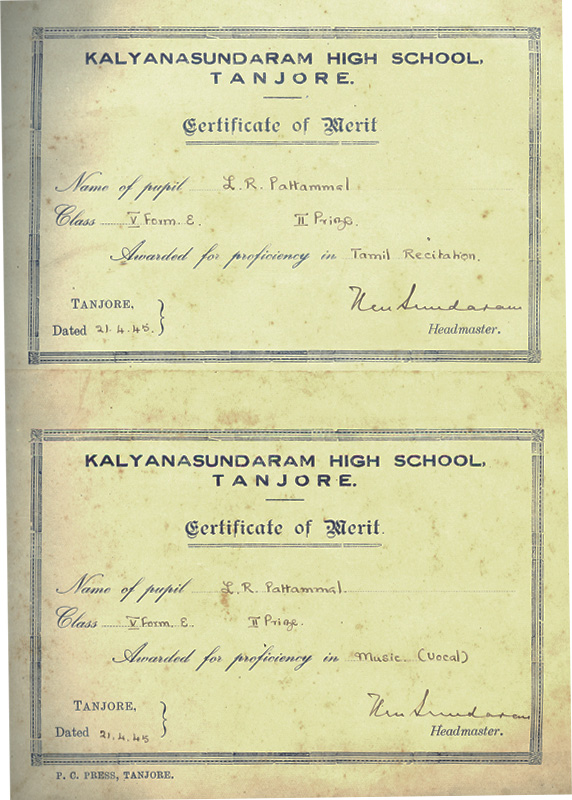 KALYANASUNDARAM HIGH SCHOOL,
TANJORE.
Certificate of Merit
Name of pupil L. R. Pattammal
Class V Form. E. II Prize.
Awarded for proficiency in Tamil Recitation.
TANJORE,
Dated 21.4.45.
Headmaster.
KALYANASUNDARAM HIGH SCHOOL,
TANJORE.
Certificate of Merit.
Name of pupil L. R. Pattammal.
Class V Form. E. II Prize.
Awarded for proficiency in Music. (Vocal)
TANJORE,
Dated 21.4.45
Headmaster.
P. C. PRESS, TANJORE.